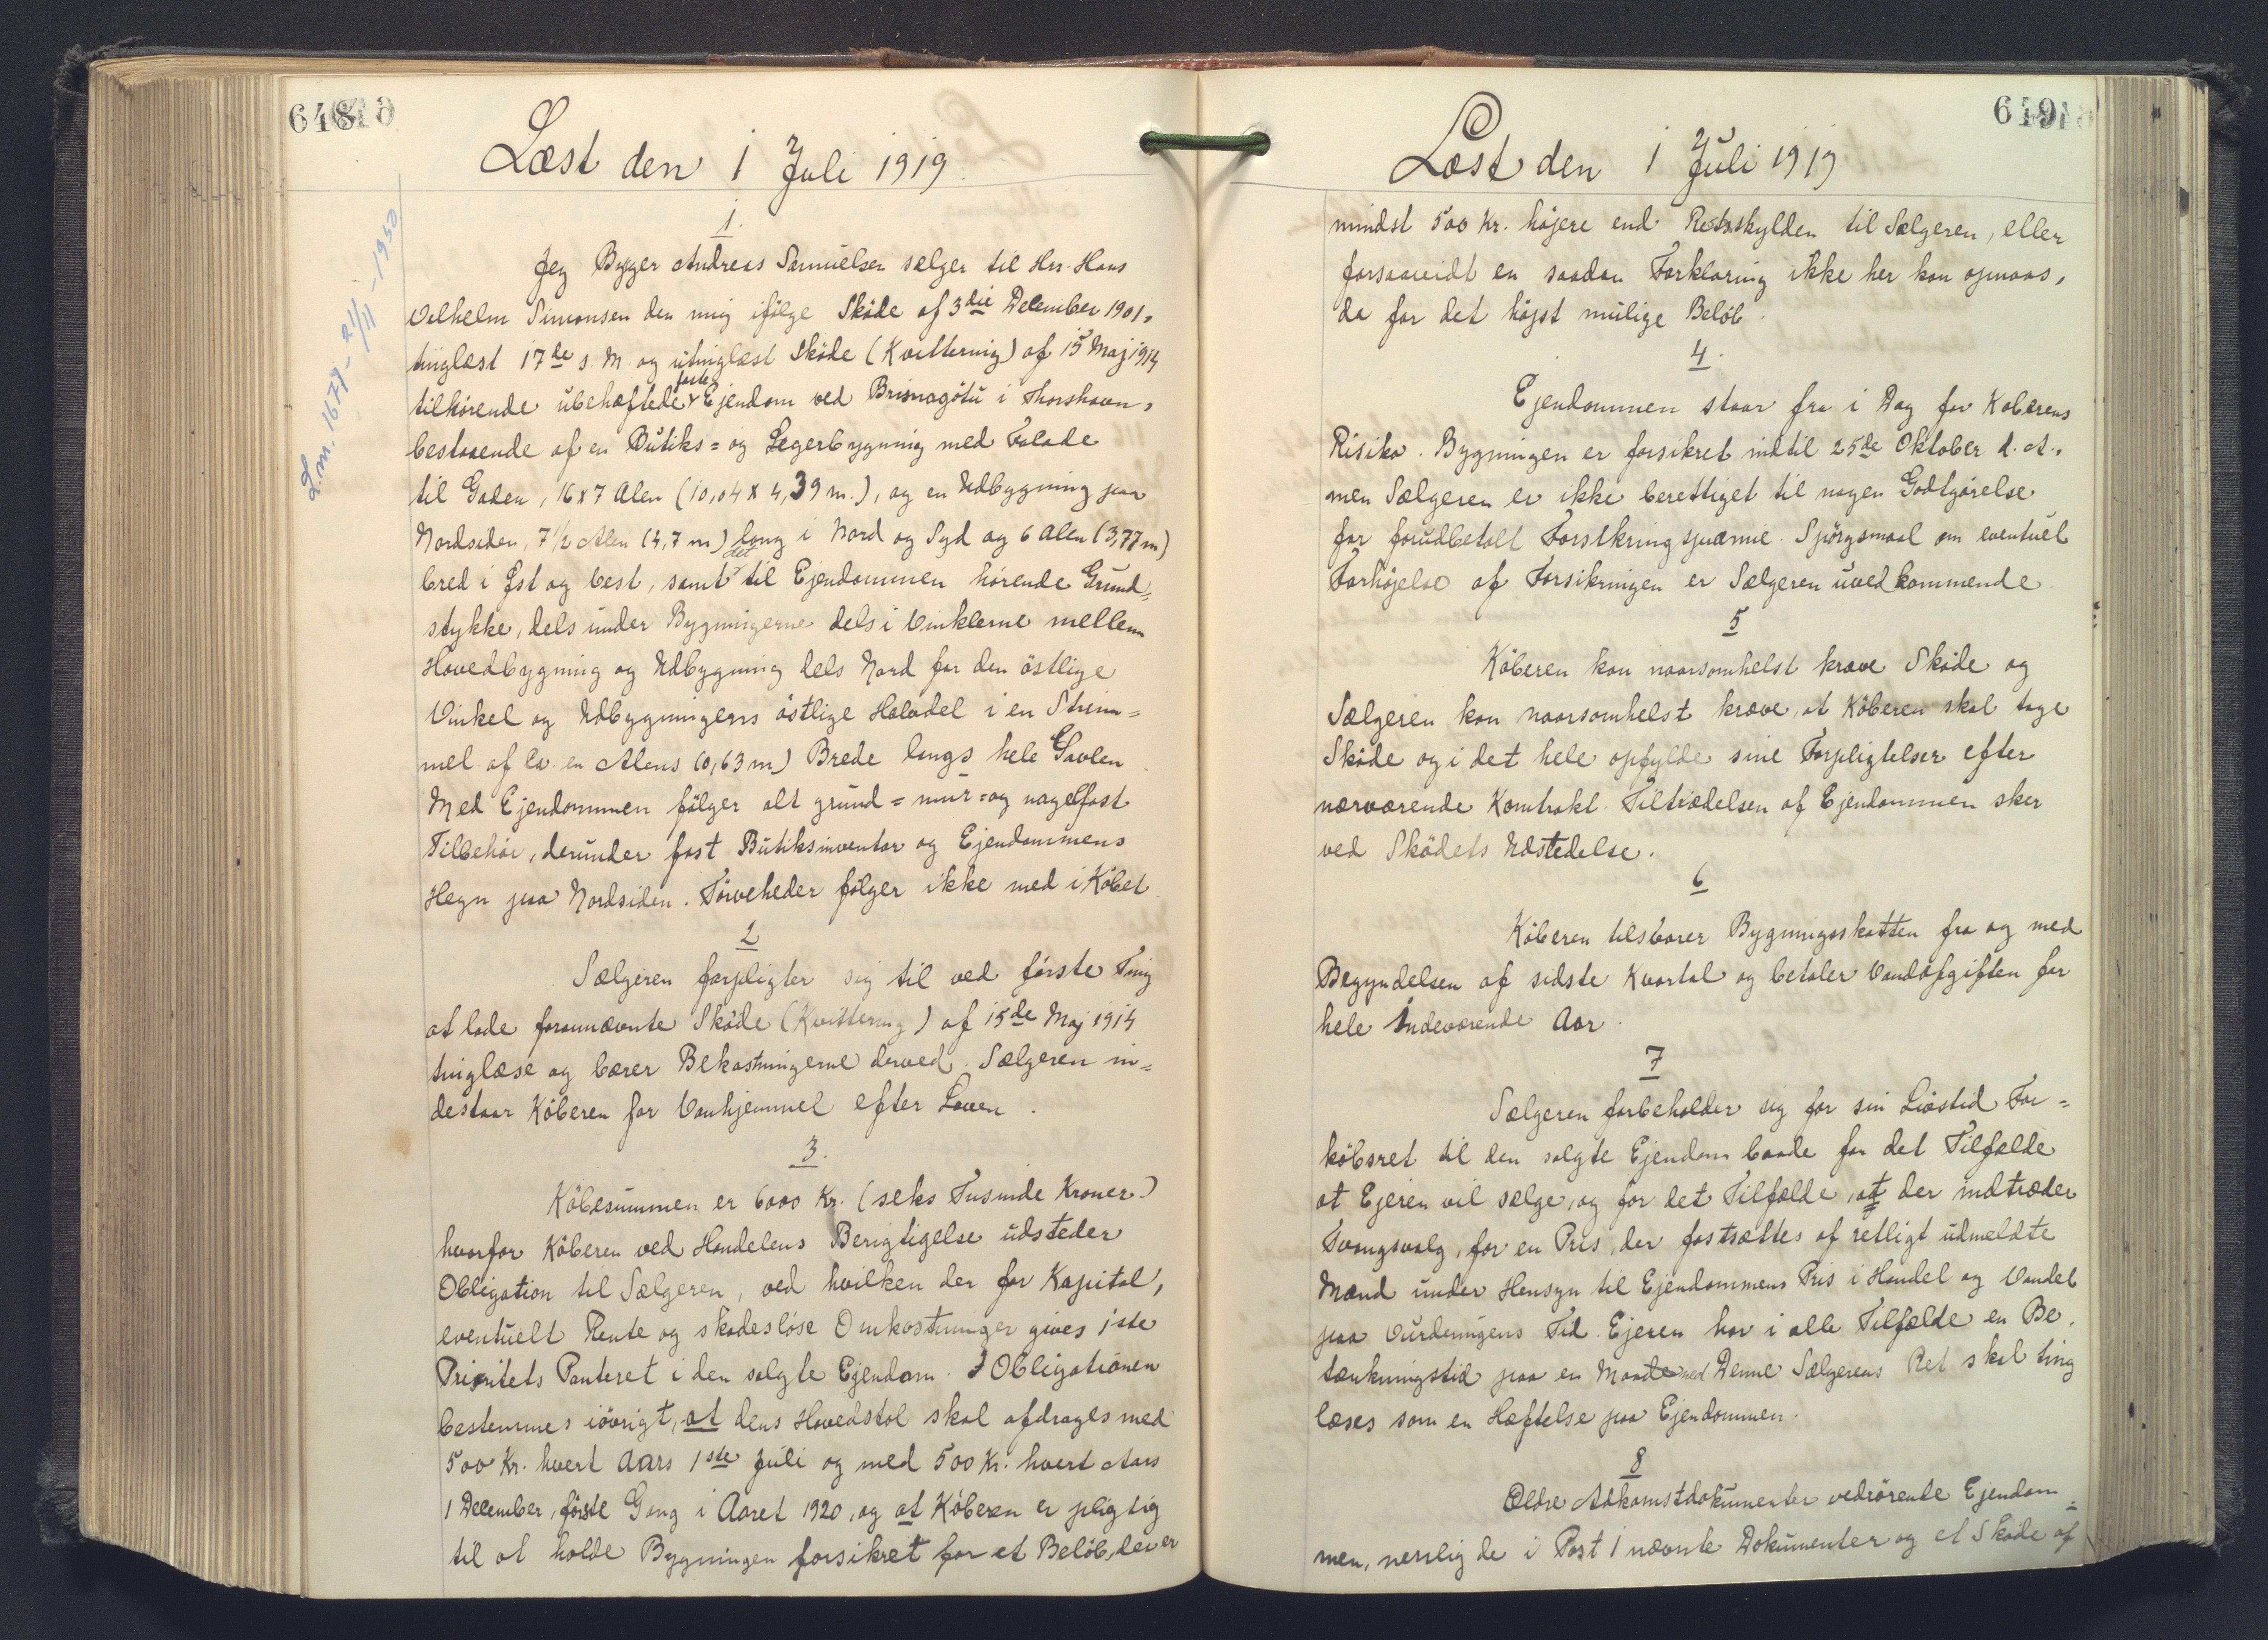 648
Læst den 1 Juli 1919.
L.m. 1679 - 21/11 - 1950
1.
Jeg Bygger Andreas Samuelsen sælger til Hr. Hans
Vilhelm Simonsen den mig ifölge Sköde af 3die December 1901,
tinglæst 17de s. M. og utinglæst Sköde (Kvittering) af 15 Maj 1914
tilhörende ubehæftede faste Ejendom ved Bringsnagøtu i Thorshavn,
bestaaende af en Butiks= og Lagerbygning med Facade
til Gaden, 16 x 7 Alen (10,04 x 4,39 m.), og en Udbygning paa
Nordsiden, 7 1/2 Alen (4,7 m) lang i Nord og Syd og 6 Alen (3,77 m)
bred i Øst og Vest, samt det til Ejendommen hörende Grund=
stykke, dels under Bygningerne dels i Vinklerne mellem
Hovedbygning og Udbygning dels Nord for den östlige
Vinkel og Udbygningens östlige Halvdel i en Strim=
mel af ca. en Alens (0,63 m) Brede langs hele Gavlen.
Med Ejendommen fölger alt grund= mur= og nagelfast
Tilbehör, derunder fast Butiksinventar og Ejendommens
Hegn paa Nordsiden. Törveheder fölger ikke med i Köbet.
2
Sælgeren forpligter sig til ved förste Ting
at lade forannævnte Sköde (Kvittering) af 15de Maj 1914
tinglæse og bærer Bekostningerne derved. Sælgeren in=
destaar Köberen for Vanhjemmel efter Loven.
3.
Köbesummen er 6000 Kr. (seks Tusinde Kroner)
hvorfor Köberen ved Handelens Berigtigelse udsteder
Obligation til Sælgeren, ved hvilken der for Kapital,
eventuelt Rente og skadeslöse Omkostninger gives 1ste
Prioritets Panteret i den solgte Ejendom. I Obligationen
bestemmes iövrigt, at dens Hovedstol skal afdrages med
500 Kr. hvert Aars 1ste Juli og med 500 Kr. hvert Aars
1 December, förste Gang i Aaret 1920, og at Köberen er pligtig
til at holde Bygningen forsikret for et Belöb, der er
649
Læst den 1 Juli 1919
mindst 500 Kr. höjere end Restskylden til Sælgeren, eller
forsaavidt en saadan Forklaring ikke her kan opnaas,
da for det höjst mulige Belöb.
4.
Ejendommen staar fra i Dag for Köberens
Risiko. Bygningen er forsikret indtil 25de Oktober d. A.,
men Sælgeren er ikke berettiget til nogen Godtgörelse
for forudbetalt Forsikringspræmie. Spörgsmaal om eventuel
Forhöjelse af Forsikringen er Sælgeren uvedkommende.
5
Köberen kan naarsomhelst kræve Sköde og
Sælgeren kan naarsomhelst kræve, at Köberen skal tage
Sköde og i det hele opfylde sine Forpligtelser efter
nærværende Kontrakt. Tiltrædelsen af Ejendommen sker
ved Sködets Udstedelse.
6
Köberen tilsvarer Bygningsskatten fra og med
Begyndelsen af sidste Kvartal og betaler Vandafgiften for
hele Indeværende Aar.
7
Sælgeren forbeholder sig for sin Livstid For=
köbsret til den solgte Ejendom baade for det Tilfælde
at Ejeren vil sælge, og for det Tilfælde, at der indtræder
Tvangssalg, for en Pris, der fastsættes af retligt udmeldte
Mænd under Hensyn til Ejendommens Pris i Handel og Vandel
paa Vurderingens Tid. Ejeren har i alle Tilfælde en Be=
tænkningstid paa en Maaned Denne Sælgerens Ret skal ting
læses som en Hæftelse paa Ejendommen.
8
Ældre Adkomstdokumenter vedrörende Ejendom=
men, nemlig de i Post 1 nævnte Dokumenter og et Sköde af